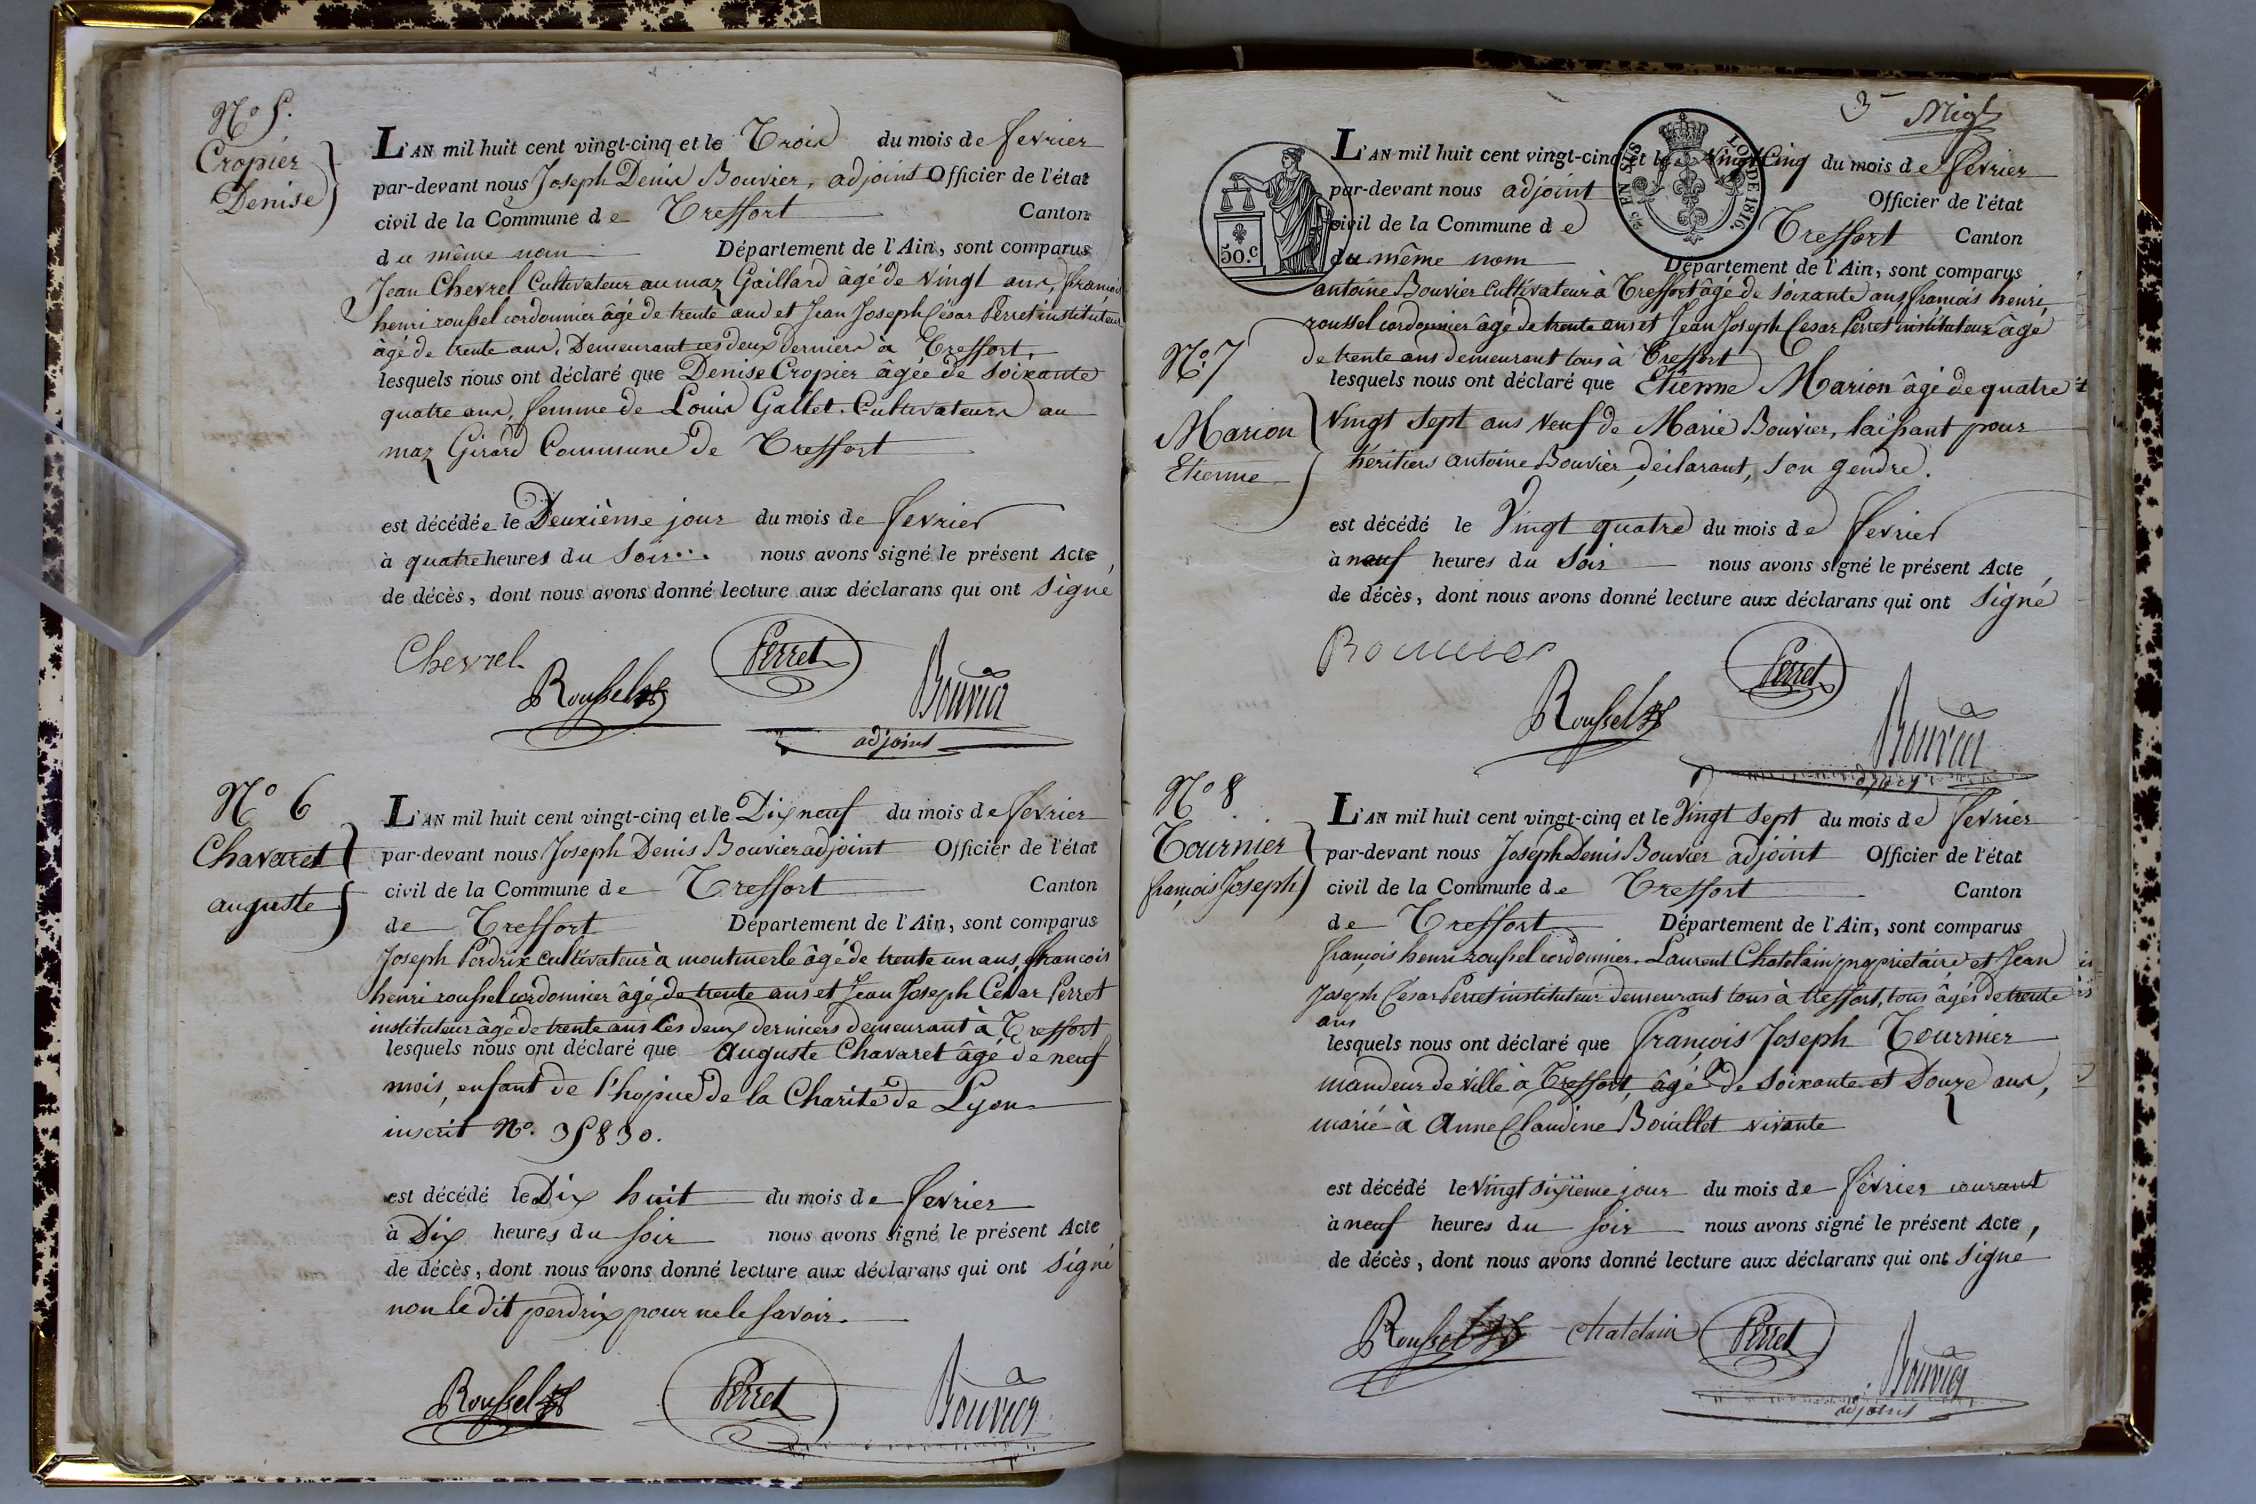 N° 5.
Cropier
Denise
L'AN mil huit cent vingt-cinq et le Trois du mois de fevrier
par-devant nous Joseph Denis Bouvier, adjoint Officier de l'état
civil de la Commune de Treffort Canton
du même nom Département de l'Ain, sont comparus
Jean Chevrel Cultivateur au maz Gaillard âgé de vingt ans, françois
henri roussel cordonnier âgé de trente ans et Jean Joseph César Perret instituteur
âgé de trente ans. Demeurant ces deux derniers à Treffort.
lesquels nous ont déclaré que Denise Cropier âgée de soixante
quatre ans, femme de Louis Gallet. Cultivateurs au
maz Girard Commune de Treffort
est décédée le Deuxième jour du mois de fevrier
à quatre heures du Soir... nous avons signé le présent Acte,
de décès, dont nous avons donné lecture aux déclarans qui ont signé
Chevrel
Perret
Roussel
Bouvier
adjoint
N° 6
Chavaret
auguste
L'AN mil huit cent vingt-cinq et le Dix neuf du mois de fevrier
par-devant nous Joseph Denis Bouvier adjoint Officier de l'état
civil de la Commune de Treffort Canton
de Treffort Département de l'Ain, sont comparus
Joseph Perdrix cultivateur à montmerle âgé de trente un ans, francois
henri roussel cordonnier âgé de trente ans et Jean Joseph César Perret
instituteur âgé de trente ans les deux derniers demeurant à Treffort
lesquels nous ont déclaré que auguste Chavaret âgé de neuf
mois, enfant de l'hospice de la Charité de Lyon
inscrit N°. 35830.
est décédé le Dix huit du mois de fevrier
à Dix heures du soir nous avons signé le présent Acte
de décès, dont nous avons donné lecture aux déclarans qui ont signé
non le dit perdrix pour ne le savoir.
Roussel
Perret
Bouvier
3
L'AN mil huit cent vingt-cinq et le Vingt Cinq du mois de fevrier
par-devant nous adjoint Officier de l'état
civil de la Commune de Treffort Canton
du même nom Département de l'Ain, sont comparus
50.c
LOI DE 1816.
antoine Bouvier cultivateur à Treffort âgé de soixante ans françois henri
roussel cordonnier âgé de trente ans et Jean Joseph César Perret instituteur âgé
de trente ans demeurant tous à Treffort
N°. 7
Marion
Etienne
lesquels nous ont déclaré que Etienne Marion âgé de quatre
vingt sept ans veuf de Marie Bouvier, laissant pour
héritiers antoine Bouvier, déclarant, son gendre.
est décédé le Vingt quatre du mois de fevrier
à neuf heures du soir nous avons signé le présent Acte,
de décès, dont nous avons donné lecture aux déclarans qui ont signé
Bouvier
Perret
Roussel
Bouvier
adjoint
N° 8
Tournier
françois Joseph
L'AN mil huit cent vingt-cinq et le Vingt sept du mois de fevrier
par-devant nous Joseph Denis Bouvier adjoint Officier de l'état
civil de la Commune de Treffort Canton
de Treffort Département de l'Ain, sont comparus
françois henri roussel cordonnier. Laurent Chatelain propriétaire et Jean
Joseph César Perret instituteur demeurant tous à treffort, tous âgés de trente
ans
lesquels nous ont déclaré que françois Joseph Tournier
mandeur de ville à Treffort, âgé de soixante et Douze ans,
marié à Anne Claudine Bouillet vivante
est décédé le vingt sixième jour du mois de février courant
à neuf heures du soir nous avons signé le présent Acte,
de décès, dont nous avons donné lecture aux déclarans qui ont signé
Roussel
chatelain
Perret
Bouvier
adjoint